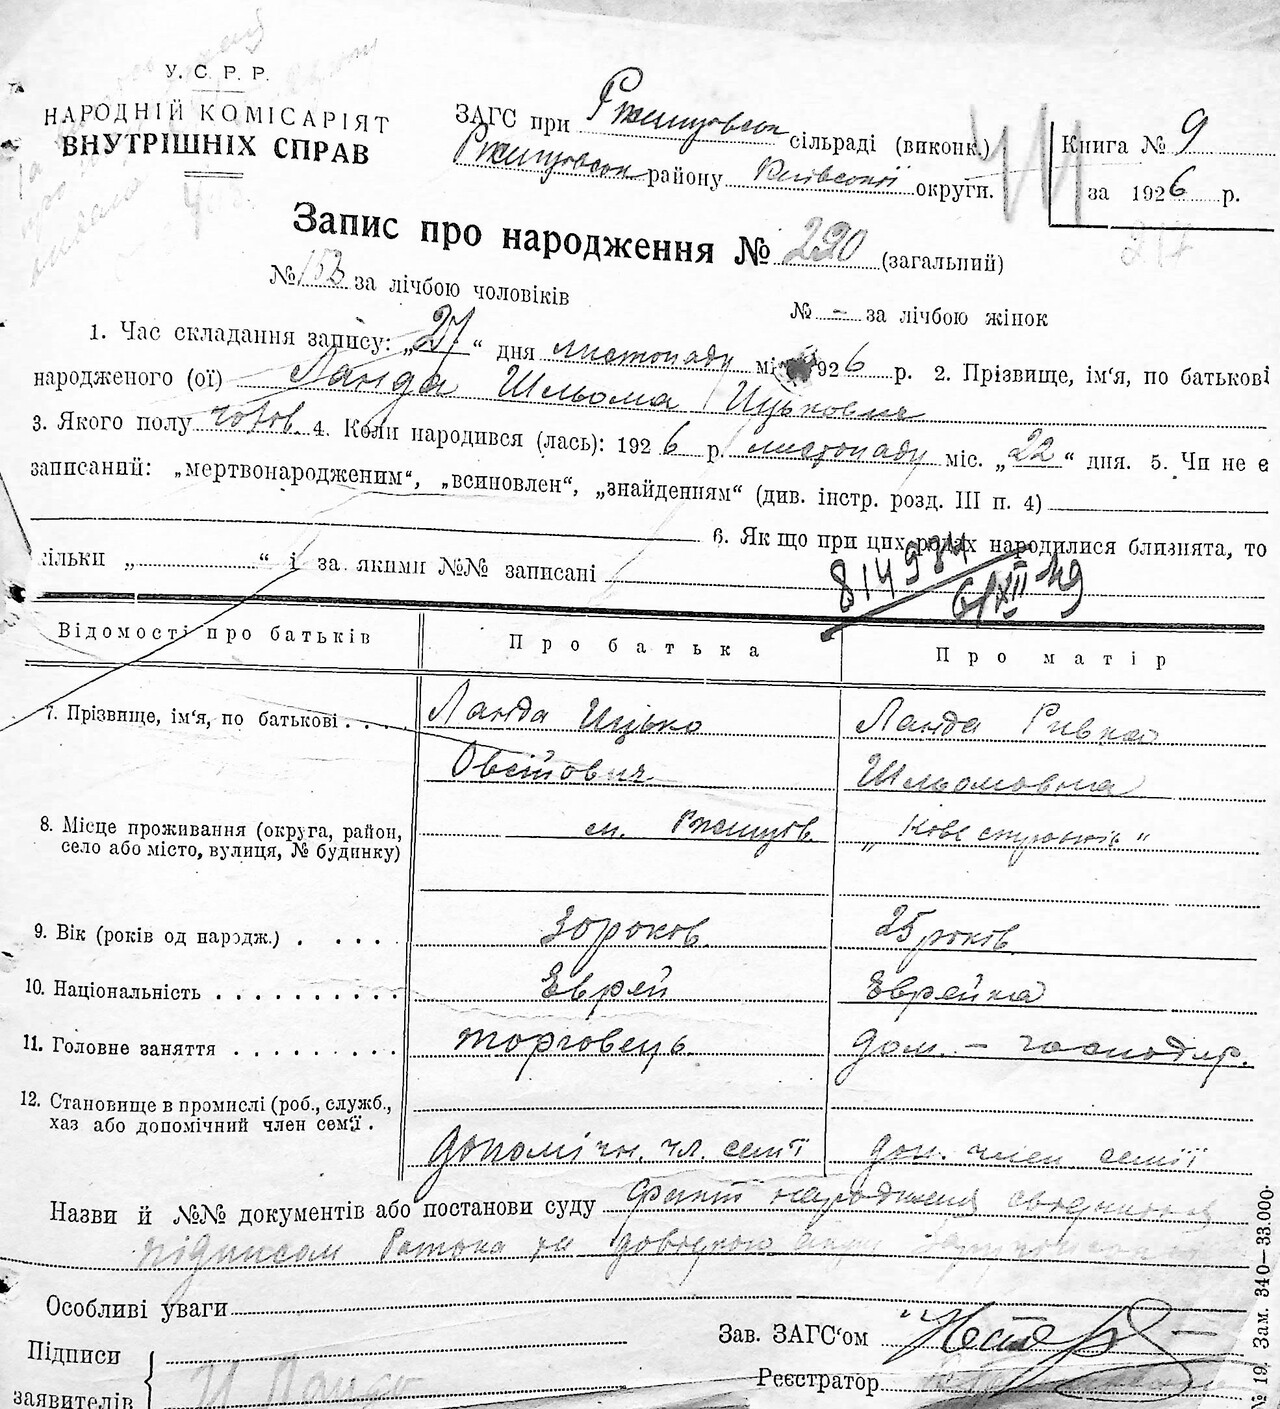 У. С. Р. Р.
НАРОДНІЙ КОМІСАРІЯТ
ВНУТРІШНІХ СПРАВ
ЗАГС при Ржищовськ сільраді (виконк.)
Ржищовськ району Київської округи.
Книга № 9
за 1926 р.
Запис про народження № 220 (загальний)
№ 153 за лічбою чоловіків
№ – за лічбою жінок
1. Час складання запису: „27“ дня листопаду міс. 1926 р. 2. Прізвище, ім'я, по батькові
народженого (ої) Ланда Шльома Ицькович
3. Якого полу чолов. 4. Коли народився (лась): 1926 р. листопаду міс. „22“ дня. 5. Чи не є
записаний: „мертвонародженим“, „всиновлен“, „знайденням“ (див. інстр. розд. III п. 4)
6. Як що при цих родах народилися близнята, то
кільки „ “ і за якими №№ записані
814984
6/XII 49
Відомості про батьків
Про батька
Про матір
7. Прізвище, ім'я, по батькові . . . .
Ланда Ицько
Ланда Ривка
Овсійович
Шльомовна
8. Місце проживання (округа, район,
село або місто, вулиця, № будинку)
м. Ржищов.
9. Вік (років од народж.) . . . . .
30 роков.
25 роков
10. Національність . . . . . . . . . .
Еврей
Еврейка
11. Головне заняття . . . . . . . . .
торговець
дом. – господар.
12. Становище в промислі (роб., служб.,
хаз або допомічний член сем'ї .
допомічн. чл. семї
доп. член семії
Назви й №№ документів або постанови суду факт народження
підписом батька та
Особливі уваги
Підписи
заявителів
И Ланда
Зав. ЗАГС'ом
Реєстратор
№ 19. Зам. 340—33.000.